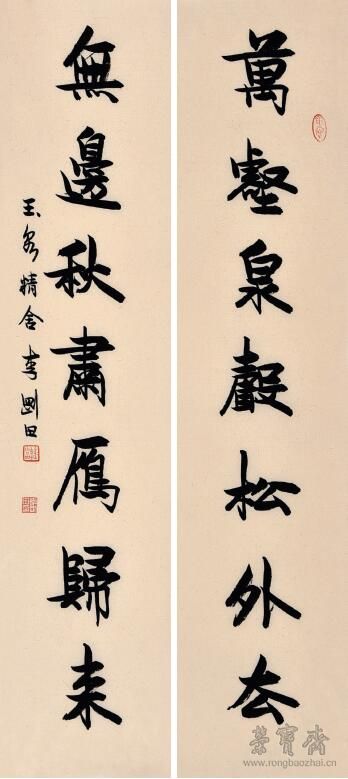 萬壑泉聲松外去
無邊秋肅鴈歸来
玉泉精舍李剛田
榮寶齋
www.rongbaozhai.cn